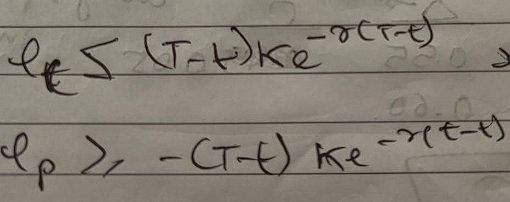 ρ_t ≤ (T-t)Ke^{-r(T-t)},
ρ_p ≥ -(T-t) Ke^{-r(t-t)}